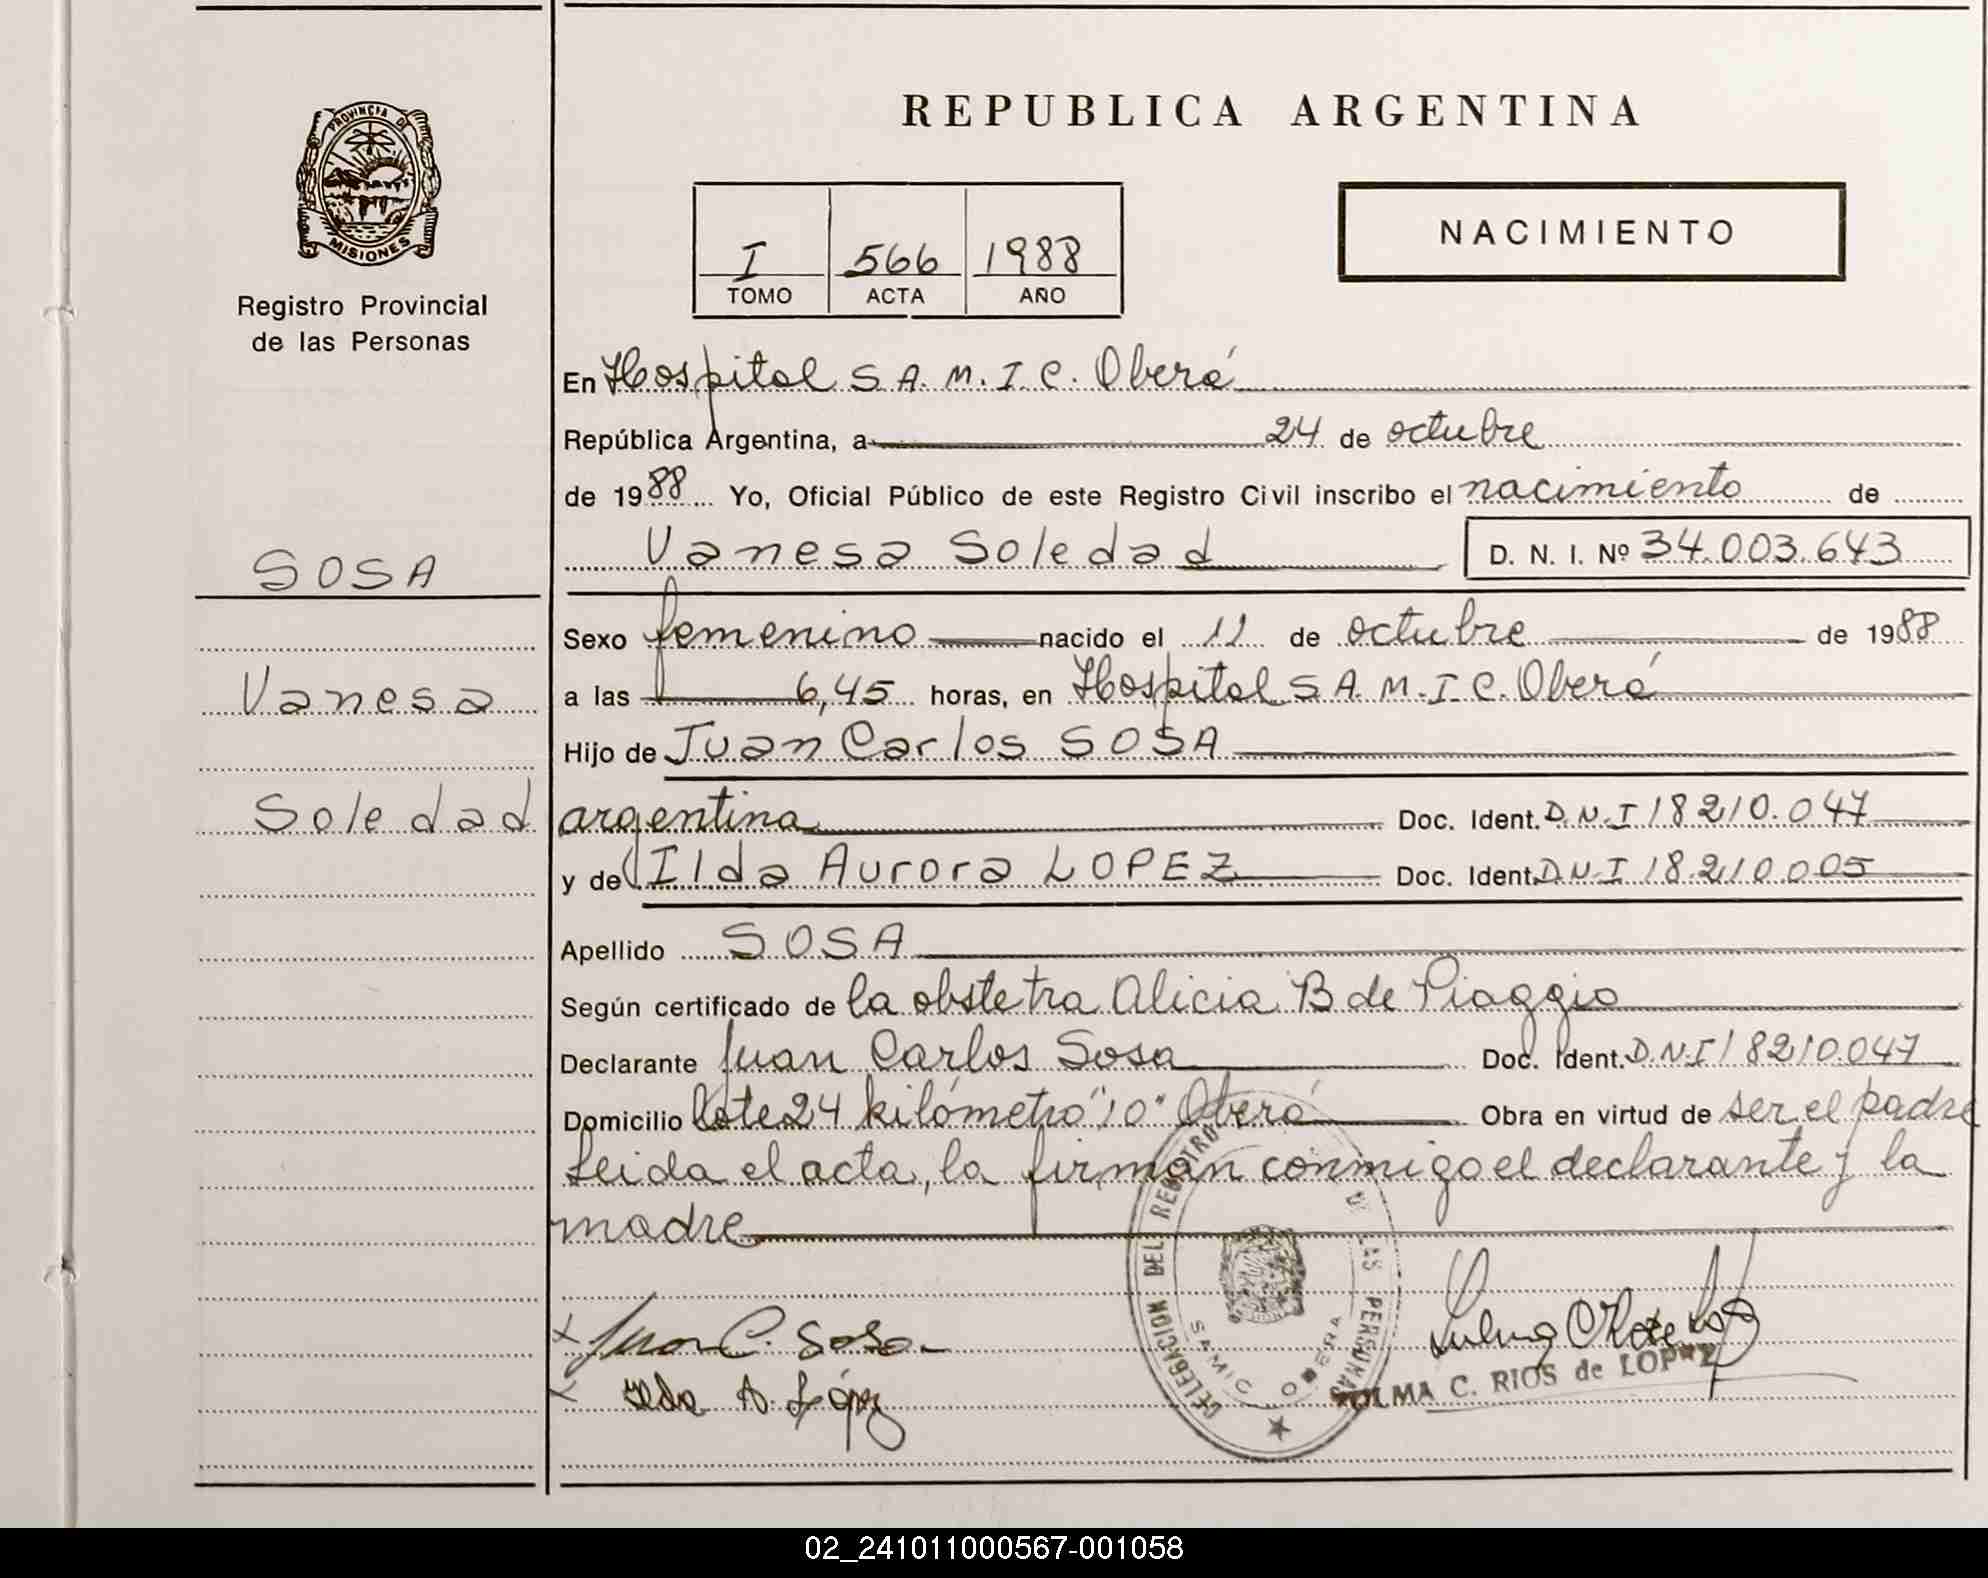 REPUBLICA ARGENTINA
PROVINCIA DE
MISIONES
Registro Provincial
de las Personas
NACIMIENTO
I 566 1988
TOMO ACTA AÑO
En Hospital S.A.M.I.C. Oberá
República Argentina, a 24 de octubre
de 1988 Yo, Oficial Público de este Registro Civil inscribo el nacimiento de
Vanesa Soledad D. N. I. Nº 34.003.643
SOSA
Vanesa
Soledad
Sexo femenino nacido el 11 de octubre de 1988
a las 6,45 horas, en Hospital S.A.M.I.C. Oberá
Hijo de Juan Carlos SOSA
argentina Doc. Ident. D.N.I 18210.047
y de Ilda Aurora LOPEZ Doc. Ident. D.N.I 18.210.005
Apellido SOSA
Según certificado de la obstetra Alicia B de Piaggio
Declarante Juan Carlos Sosa Doc. Ident. D.N.I 18210.047
Domicilio Lote 24 kilómetro "10" Oberá Obra en virtud de ser el padre
Leida el acta, la firman conmigo el declarante y la
madre
Juan C. Sosa
Ilda A. López
DELEGACION DEL REGISTRO DE LAS PERSONAS
SAMIC OBERA
C. RIOS de LOPEZ
02_241011000567-001058